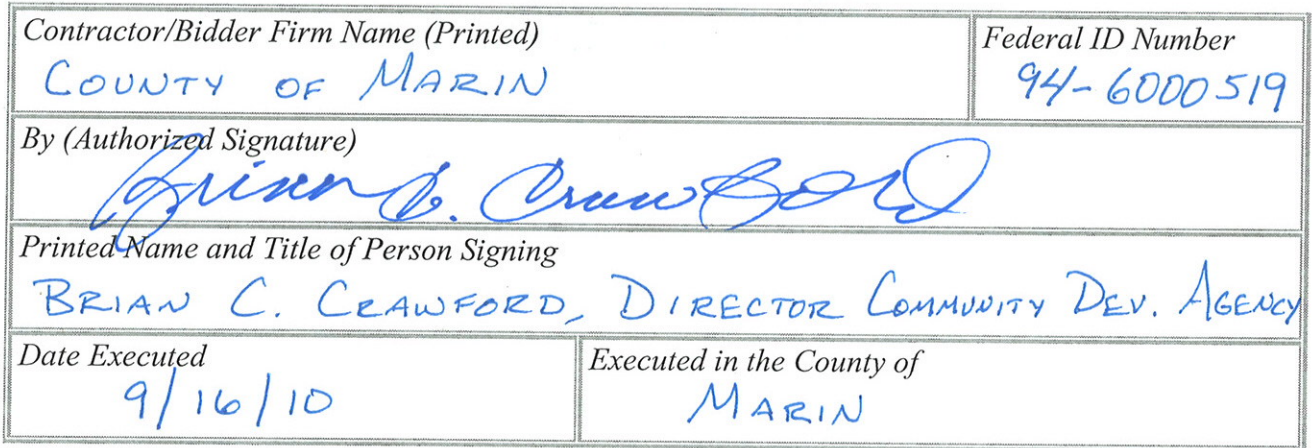 Contractor/Bidder Firm Name (Printed)
COUNTY OF MARIN
Federal ID Number
94-6000519
By (Authorized Signature)
Brian C. Crawford
Printed Name and Title of Person Signing
BRIAN C. CRAWFORD, DIRECTOR COMMUNITY DEV. AGENCY
Date Executed
9/16/10
Executed in the County of
MARIN